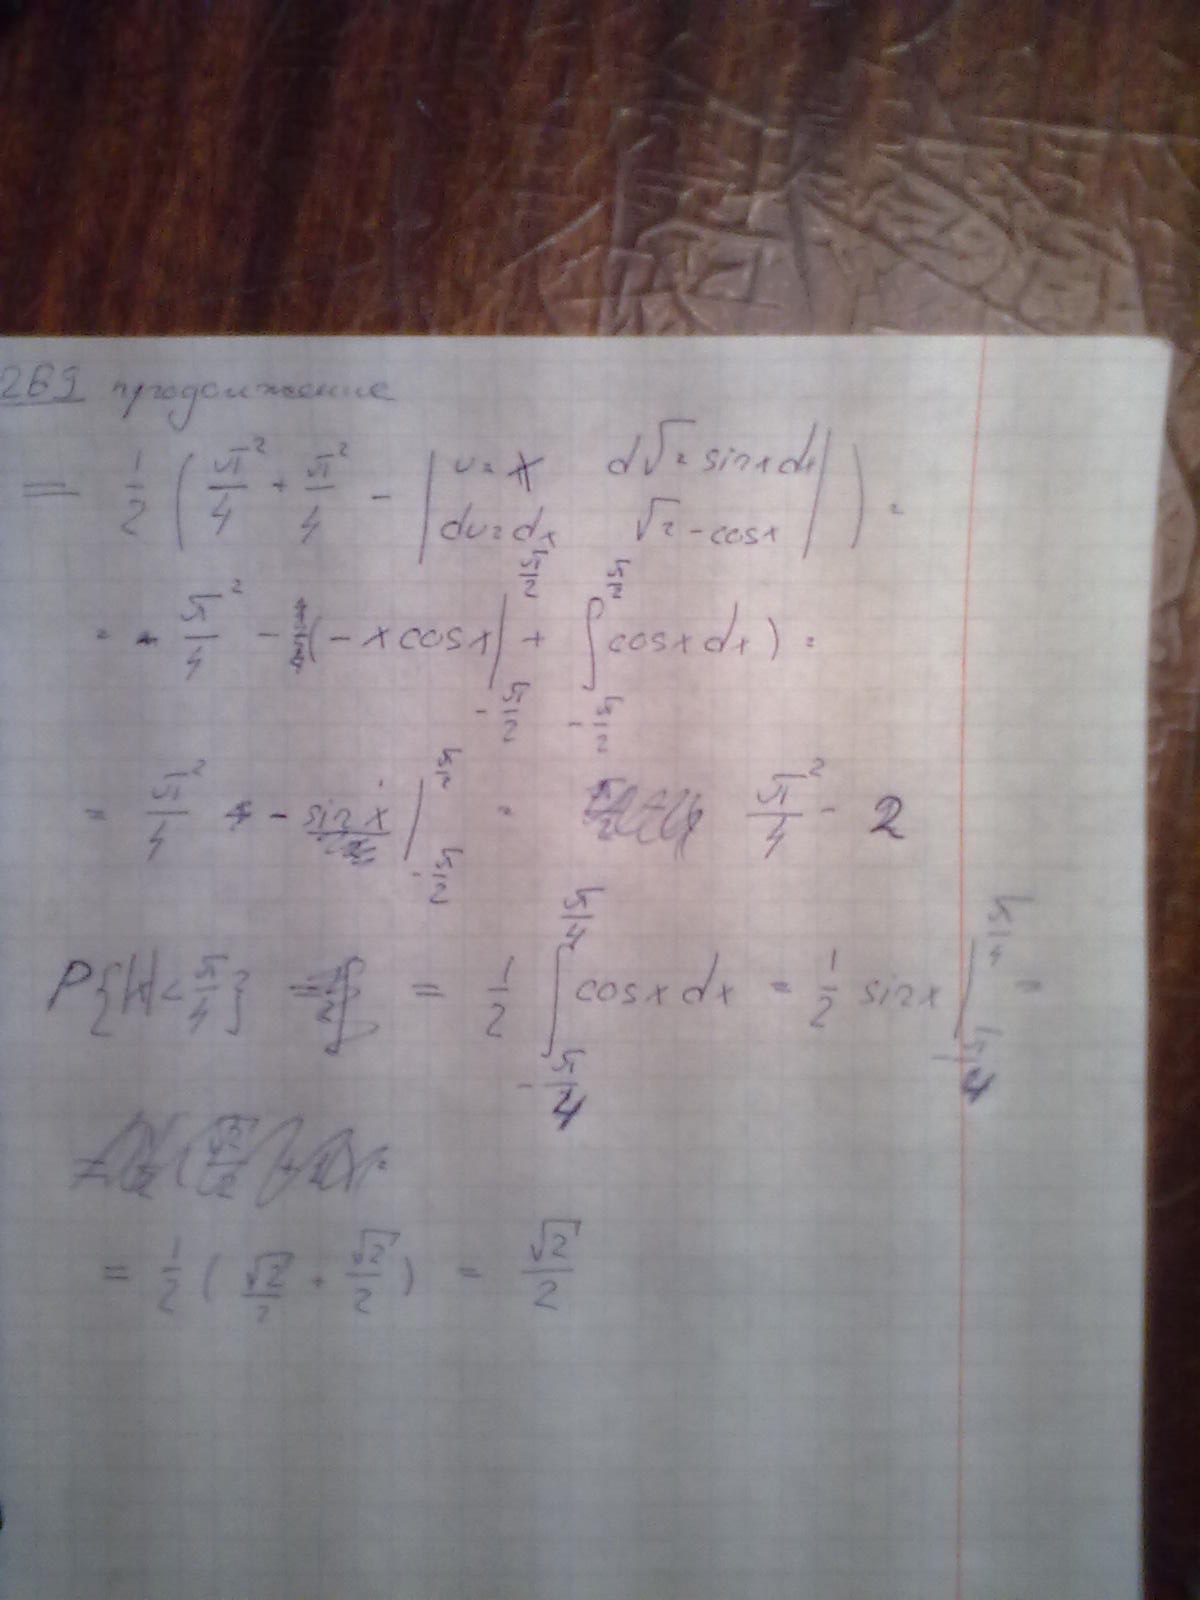 269 продолжение
= 1/2 ( π²/4 + π²/4 - | u = x dv = sinx dx | ) =
| du = dx v = -cosx |
= π²/4 - ( - x cosx |_{-π/2}^{π/2} + ∫_{-π/2}^{π/2} cosx dx ) =
= π²/4 - sin x |_{-π/2}^{π/2} = π²/4 - 2
P{|x| < π/4} = 1/2 ∫_{-π/4}^{π/4} cosx dx = 1/2 sinx |_{-π/4}^{π/4} =
= 1/2 ( √2/2 + √2/2 ) = √2/2